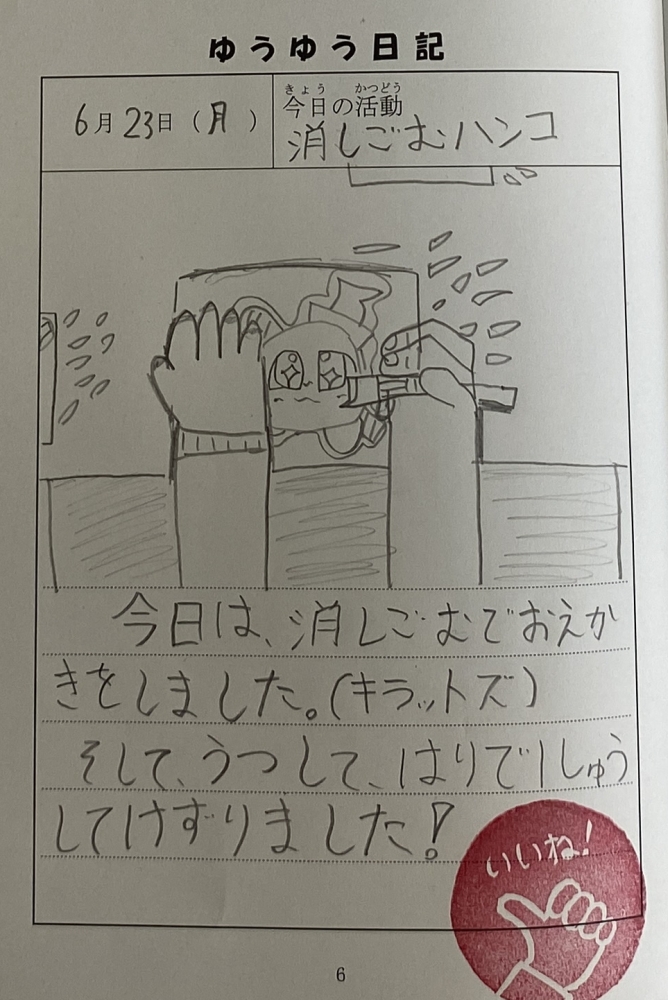 ゆうゆう日記
6月23日(月)
きょう かつどう
今日の活動
消しごむハンコ
今日は、消しごむでおえか
きをしました。(キラットズ)
そして、うつして、はりで1しゅう
してけずりました!
いいね!
6